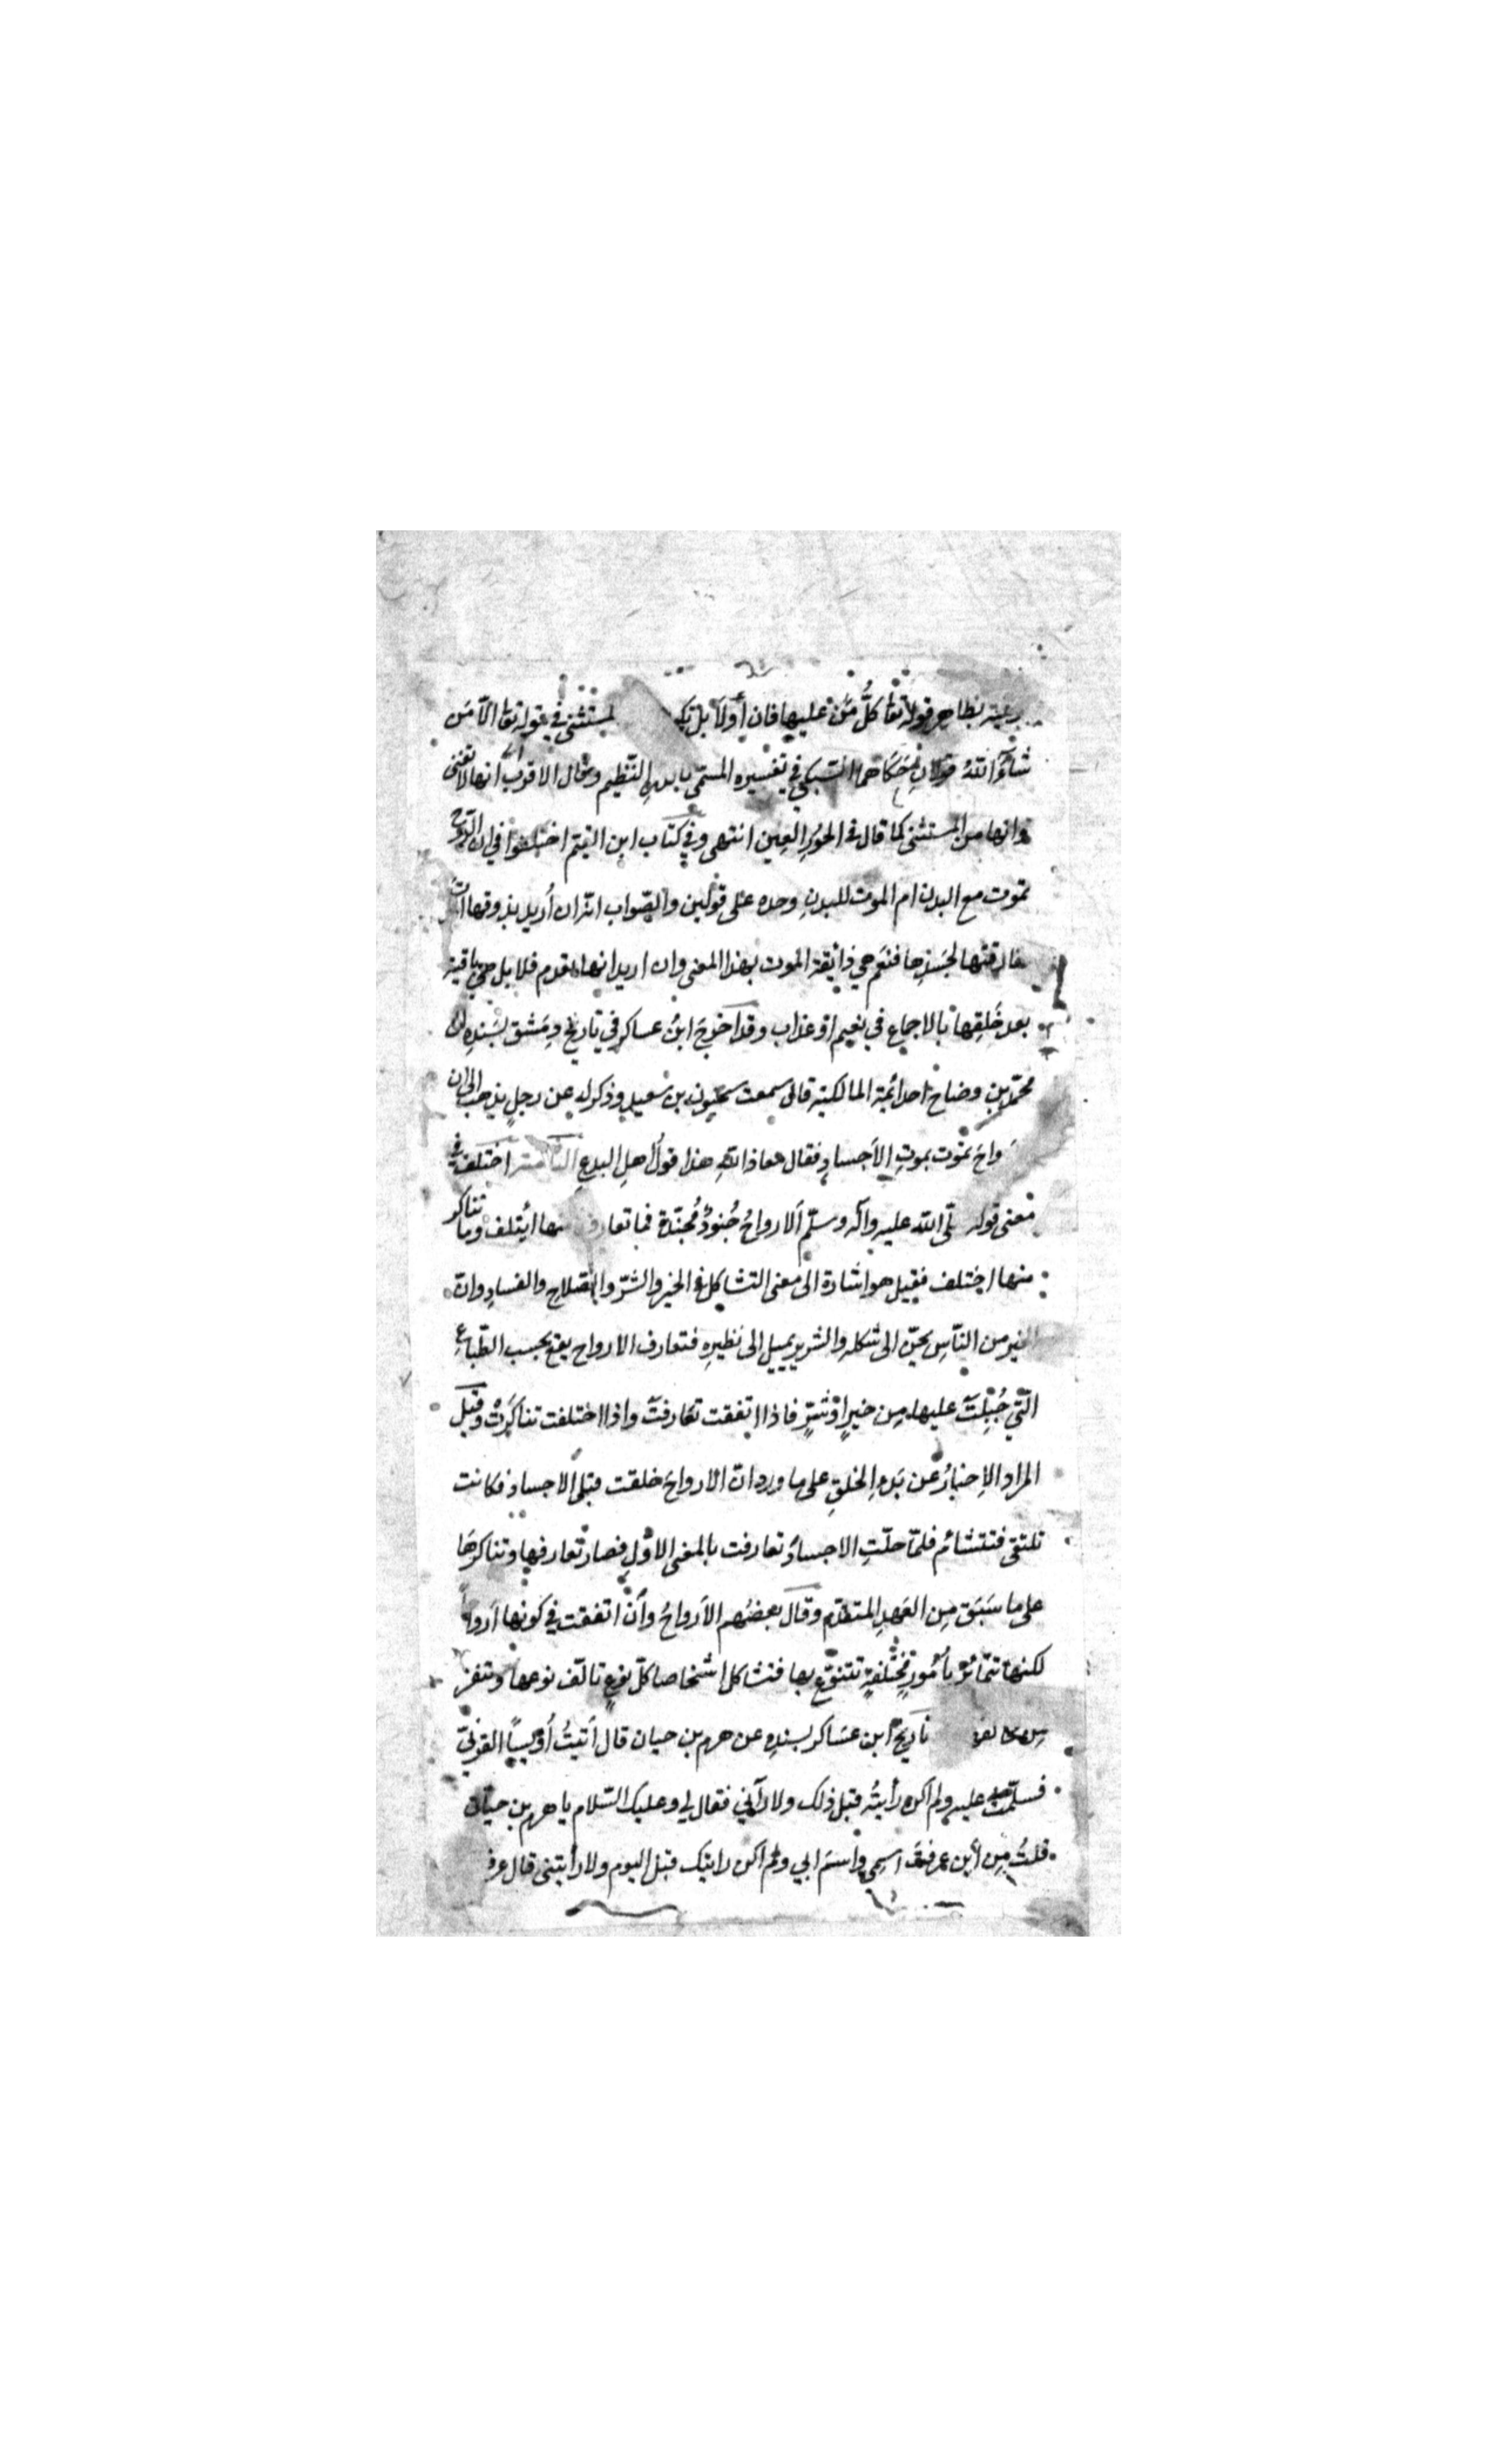 بظاهر قوله تعا كلُّ مَن عليها فان أولا بل تكو لمستثنى في قوله تعا الّا مَن
شآءَ اللهُ قولان حكاهما السّبكي في تفسيره المسمّى بالدر النّظيم وقال الاقرب انها لا تفنى
وانها من المستثنى كما قال في الحُورِ العِين انتهى وفي كتاب ابن القيّم اختلفوا في ان الرّوح
تموت مع البدن ام الموت للبدنِ وحده على قولين والصّواب انّه ان أُريد بذوقها الموت
مفارقتها لجَسَدِها فنَعَم هي ذائقة الموت بهذا المعنى وان اريد انها تعدم فلا بل هي باقية
بعد خَلقِها بالاجماع في نعيم اوعذاب وقد اخرجَ ابنُ عساكر في تاريخ دِمَشق بسَندِه الى
محمّد بنِ وضاح احد ائمّة المالكية قال سمعت سحنون بن سعيد وذكر له عن رجلٍ يذهب الى ان
رواحَ تموت بموتِ الاَجسادِ فقال معاذ اللهِ هذا قولُ اهلِ البدعِ الثامنة اختلف في
معنى قوله صلّى الله عليه وآله وسلّم اَلارواحُ جُنودٌ مُجنّدة فما تعارف منها ائتلف وما تناكر
منها اختلف فقيل هو اشارة الى معنى التشاكل في الخيرِ والشرّ والصّلاحِ والفسادِ وانّ
الخير من النّاسِ يحنّ الى شكله والشرير يميل الى نظيرِه فتعارف الارواح يقع بحسب الطّباعِ
الّتي جُبِلَت عليها من خيرٍ اوْ شرٍّ فاذا اتفقت تعارفتْ واذا اختلفت تناكرَتْ وقيل
المراد الاِخبارُ عن بَدءِ الخلقِ على ما ورد انّ الارواحَ خلقت قبل الاجساد فكانت
تلتقي فتتشائم فلمّا حلّتِ الاجسادَ تعارفت بالمعنى الاوّلِ فصار تعارفها وتناكرها
على ما سَبَقَ مِن العَهدِ المتقدّم وقال بعضُهم الاَرواحُ وأنْ اتفقت في كونها اَروا
لكنها تتمائز بأُمُورٍ مختلفةٍ تتنوّع بها فتشاكل اشخاصا كلّ نوعٍ تالف نوعها وتنفر
تاريخِ ابن عسَاكر بسندِه عن هرم بن حيان قال أَتيتُ أُوَيساً القرنيّ
فسلّمت عليه ولم اكن رأيتُه قبل ذلك ولا رآني فقال لي وعليك السّلام يا هرم بن حيّان
قلتُ مِن أين عرفتَ اسمِي واسمَ ابي ولم اكن رايتك قبل اليوم ولا رأيتني قال عرف